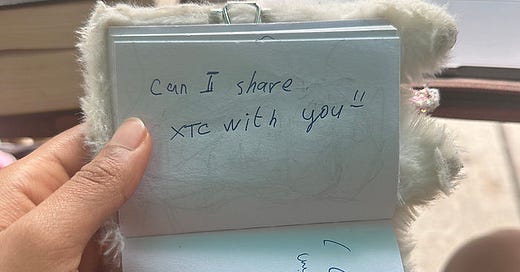 Can I share
XTC with you!!